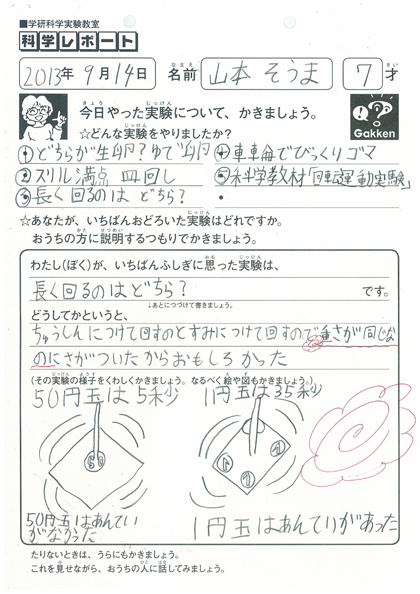 ■学研科学実験教室
科学レポート
2013年 9月14日 名前 山本 そうま 7才
今日やった実験について、かきましょう。
☆どんな実験をやりましたか?
Gakken
①どちらが生卵?ゆで卵
④車輪でびっくりゴマ
②スリル満点 皿回し
⑤科学教材「回転運動実験」
③長く回るのは どちら?
☆あなたが、いちばんおどろいた実験はどれですか。
おうちの方に説明するつもりでかきましょう。
わたし(ぼく)が、いちばんふしぎに思った実験は、
長く回るのは どちら? です。
↓あとにつづけて書きましょう。
どうしてかというと、
ちゅうしんにつけて回すのとすみにつけて回すので重さが同じな
のにさがついたからおもしろかった
(その実験の様子をくわしくかきましょう。なるべく絵や図もかきましょう。)
50円玉は5秒 1円玉は35秒
50
1 1 1
50円玉はあんてい
がなかった
1円玉はあんていがあった
たりないときは、うらにもかきましょう。
これを見せながら、おうちの人に話してみましょう。